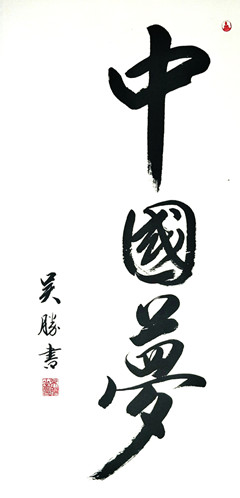 中國夢
吴勝書